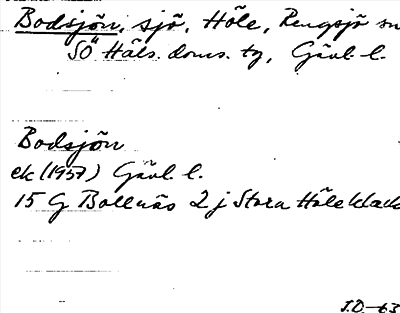 Bodsjön, sjö, Höle, Rengsjö sn
SÖ Häls. doms. tg, Gävl. l.
Bodsjön
ek (1957) Gävl. l.
15 G Bollnäs 2 j Stora Höleklack
I.D.-63